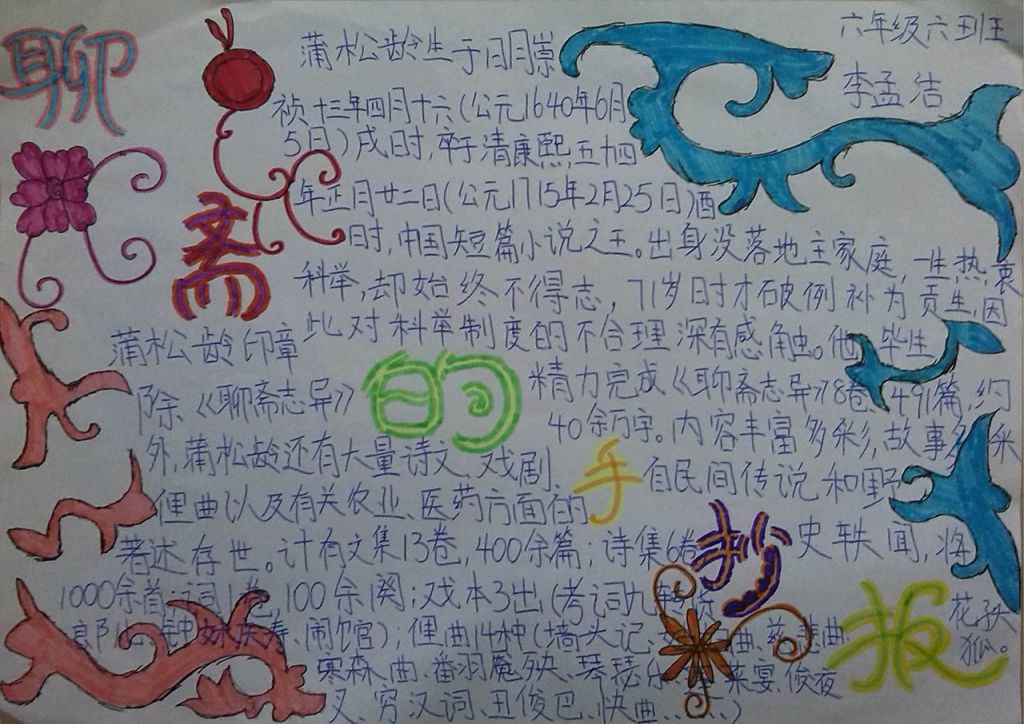 聊
斋
的
手
抄
报
六年级六班王
李孟洁
蒲松龄生于明崇
祯十三年四月十六(公元1640年6月
5日)戌时,卒于清康熙五十四
年正月廿二日(公元1715年2月25日)酉
时,中国短篇小说之王。出身没落地主家庭,一生热衷
科举,却始终不得志,71岁时才破例补为贡生,因
此对科举制度的不合理深有感触。他毕生
精力完成《聊斋志异》8卷、491篇,约
40余万字。内容丰富多彩,故事多采
自民间传说和野
史轶闻,将
花妖
狐。
蒲松龄印章
除《聊斋志异》
外,蒲松龄还有大量诗文、戏剧、
俚曲以及有关农业、医药方面的
著述存世。计有文集13卷,400余篇;诗集6卷
1000余首;词1卷,100余阕;戏本3出(考词九转
郎 钟妹庆寿、闹馆);俚曲14种(墙头记、 曲、慈悲曲、
寒森曲、翻羽魔殃、琴瑟乐 莱宴、俊夜
叉、穷汉词、丑俊巴、快曲......)